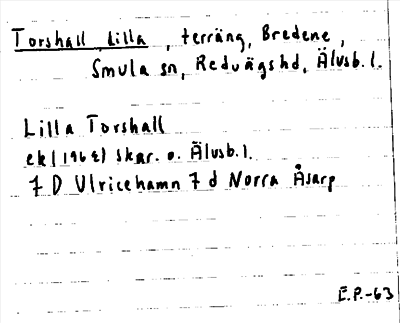 Torshall, Lilla, terräng, Bredene,
Smula sn, Redvägshd, Älvsb.l.
Lilla Torshall
ek (1964) Skar. o. Älvsb.l.
7 D Ulricehamn 7 d Norra Åsarp
E.P.-63